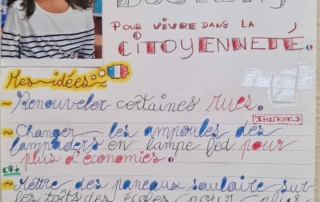 POUR VIVRE DANS LA
CITOYENNETÉ.
Mes idées :
~ Renouveler certaines rues.
~ Changer les ampoules des
lampadaires en lampe led pour
plus d'économies.
~ Mettre des paneaux soulaire sur
les toits des écoles pour plus